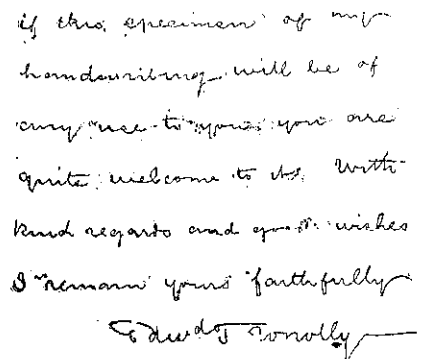 if this specimen of my
handwriting will be of
any use to you, you are
quite welcome to it. With
kind regards and good wishes
I remain yours faithfully